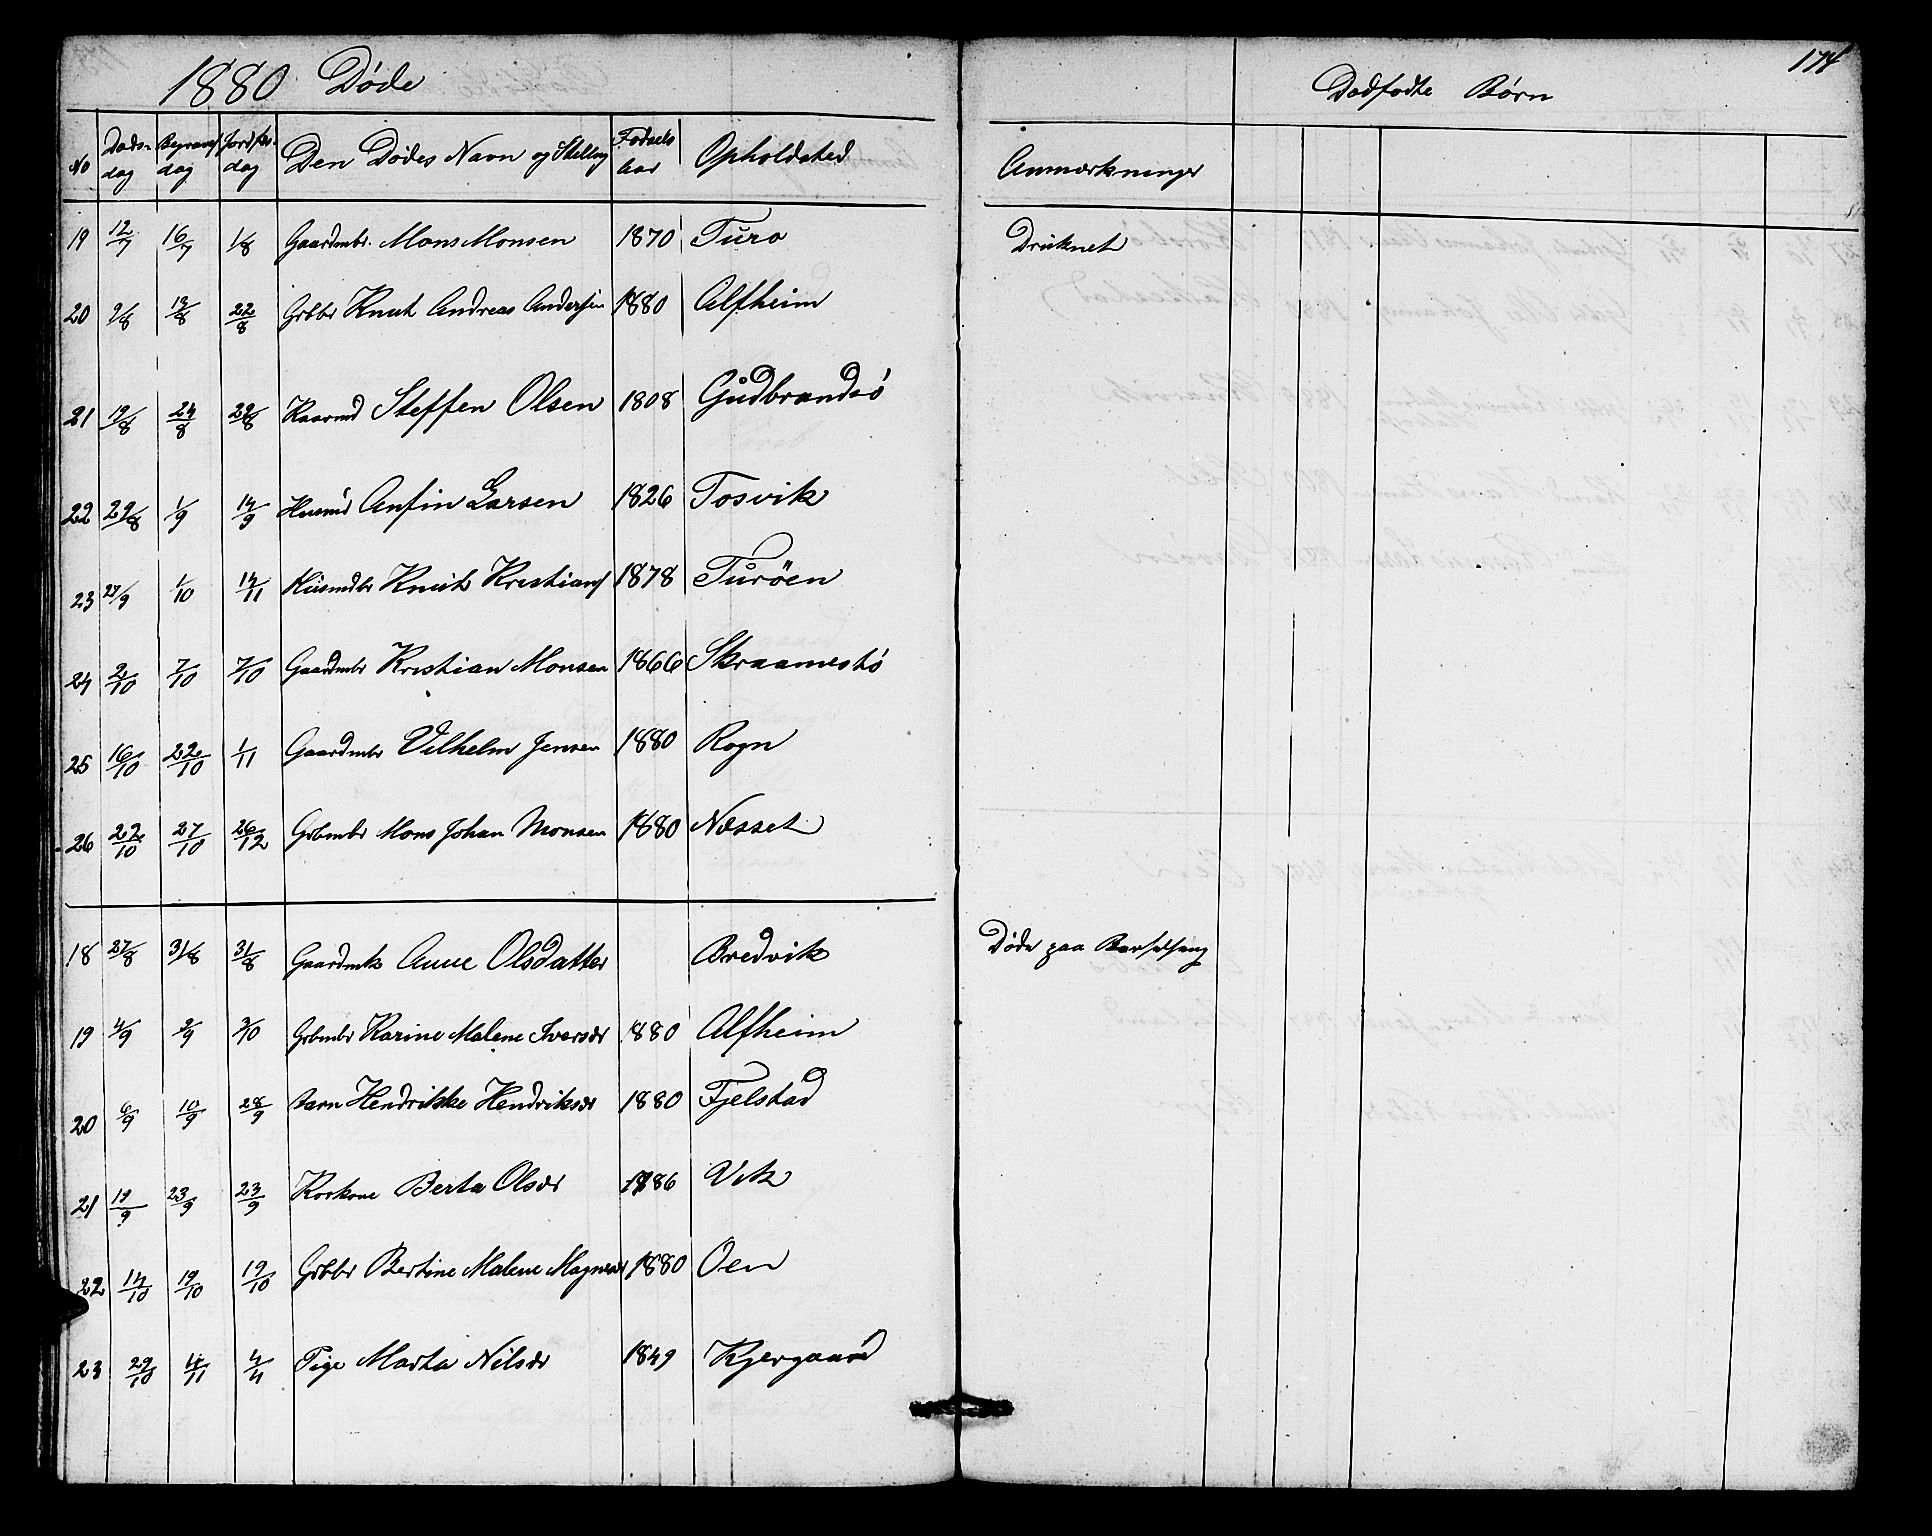 1880 Døde
No Døds-dag Begravels dag Jordfs.-dag Den Dødes Navn og Stelling Fødsels Aar Opholdsted
19 12/7 16/7 1/8 Gaardmbr. Mons Monsen 1870 Turo
20 9/8 13/8 22/8 Grbbr Knut Andreas Andersen 1880 Alfheim
21 19/8 24/8 29/8 Kaarmd Steffen Olsen 1808 Gudbrandsö
22 29/8 1/9 14/9 Husmd Anfin Larsen 1826 Tosvik
23 27/9 1/10 14/11 Husmdbr Knut Kristians 1878 Turöen
24 2/10 7/10 7/10 Gaardmbr Kristian Monsen 1866 Skraamestö
25 16/10 22/10 1/11 Gaardmbr Vilhelm Jensen 1880 Rogn
26 22/10 27/10 26/12 Grbmbr Mons Johan Monsen 1880 Næsset
18 27/8 31/8 31/8 Gaardmk Anne Olsdatter Bredvik
19 4/9 9/9 3/10 Grbmbr Karine Malene Iversdr 1880 Alfheim
20 6/9 10/9 28/9 Barn Hendrikke Hendriksdr 1880 Fjelstad
21 19/9 23/9 23/9 Korkone Berta Olsdr 1786 Vik
22 14/10 19/10 19/10 Grbbr Bertine Malene Magnesdr 1880 Oen
23 29/10 4/11 4/11 Pige Marta Nilsdr 1849 Kjergaard
174
Dødfødte Børn
Anmærkninger
Druknet
Døde paa Barselseng